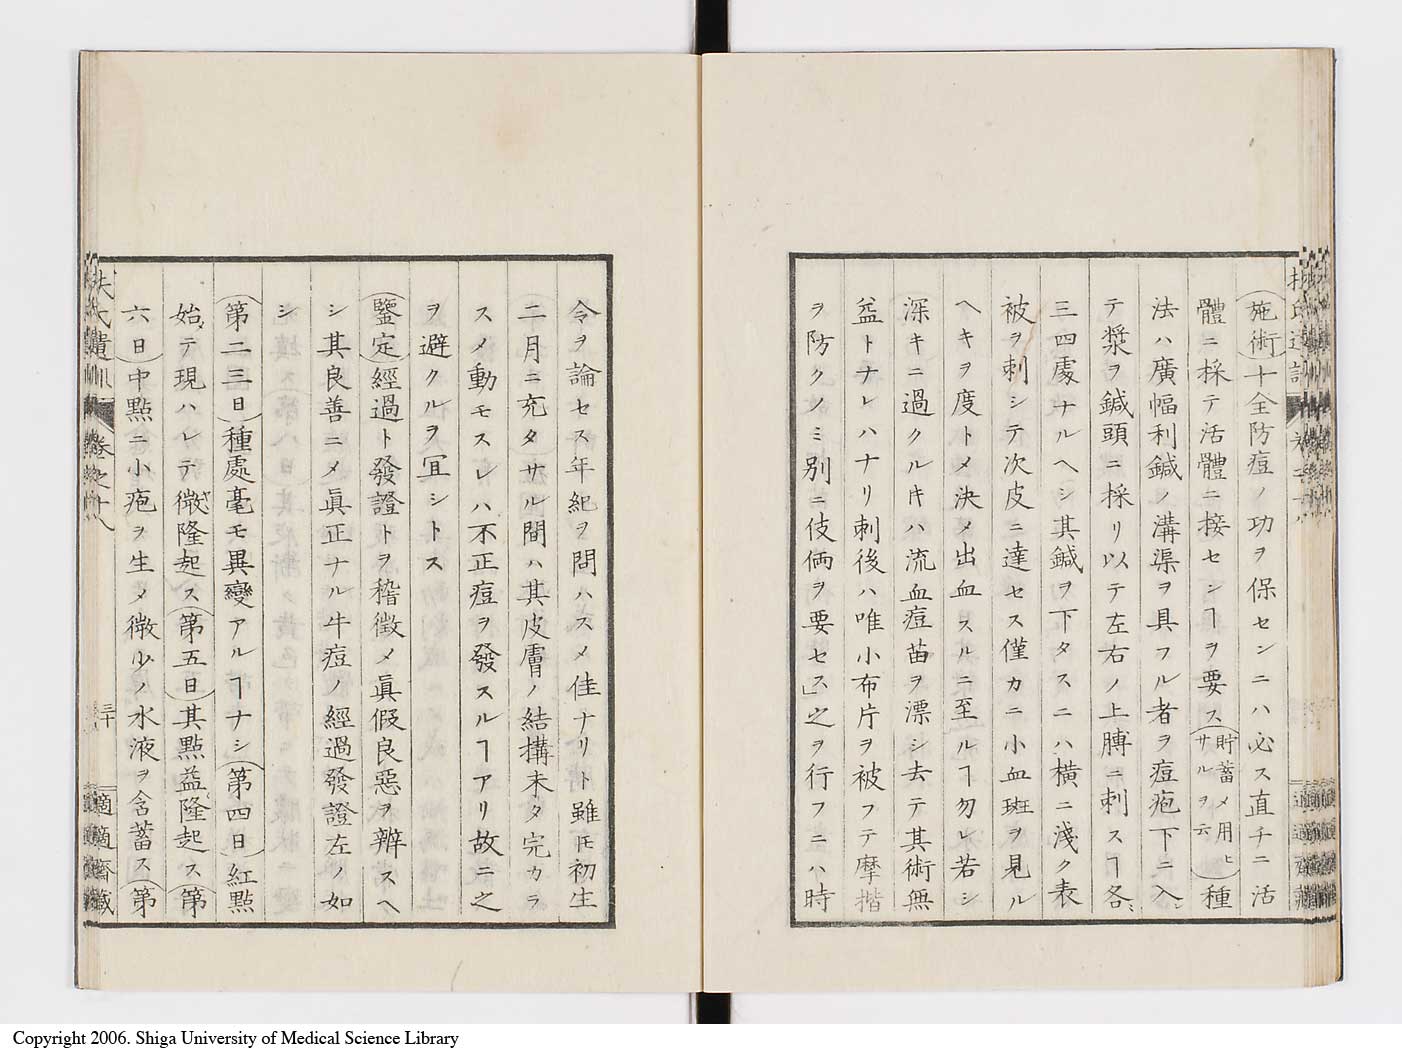 施術十全防痘ノ功ヲ保センニハ必ス直チニ活
體ニ採テ活體ニ接センヿヲ要ス貯蓄メ用ヒサルヲ云種
法ハ廣幅利鍼ノ溝渠ヲ具フル者ヲ痘疱下ニ入
テ漿ヲ鍼頭ニ採リ以テ左右ノ上膊ニ刺スヿ各
三四處ナルヘシ其鍼ヲ下タスニハ横ニ淺ク表
被ヲ刺シテ次皮ニ達セス僅カニ小血斑ヲ見ル
ヘキヲ度トメ決メ出血スルニ至ルヿ勿レ若シ
深キニ過クル𪜈ハ流血痘苗ヲ漂シ去テ其術無
益トナレハナリ刺後ハ唯小布片ヲ被フテ摩揩
ヲ防クノミ別ニ伎倆ヲ要セス」之ヲ行フニハ時
令ヲ論セス年紀ヲ問ハスメ佳ナリト雖𪜈初生
二月ニ充タサル間ハ其皮膚ノ結構未タ完カラ
スメ動モスレハ不正痘ヲ發スルヿアリ故ニ之
ヲ避クルヲ冝シトス
鑒定經過ト發證トヲ稽徴メ眞假良惡ヲ辨スヘ
シ其良善ニメ眞正ナル牛痘ノ經過發證左ノ如
シ
第二三日種處毫モ異變アルヿナシ第四日紅點
始テ現ハレテ微隆起ス第五日其點益隆起ス第
六日中點ニ小疱ヲ生メ微少ノ水液ヲ含蓄ス第
扶氏遺訓 卷之十八 三十 適適齋藏
Copyright 2006. Shiga University of Medical Science Library